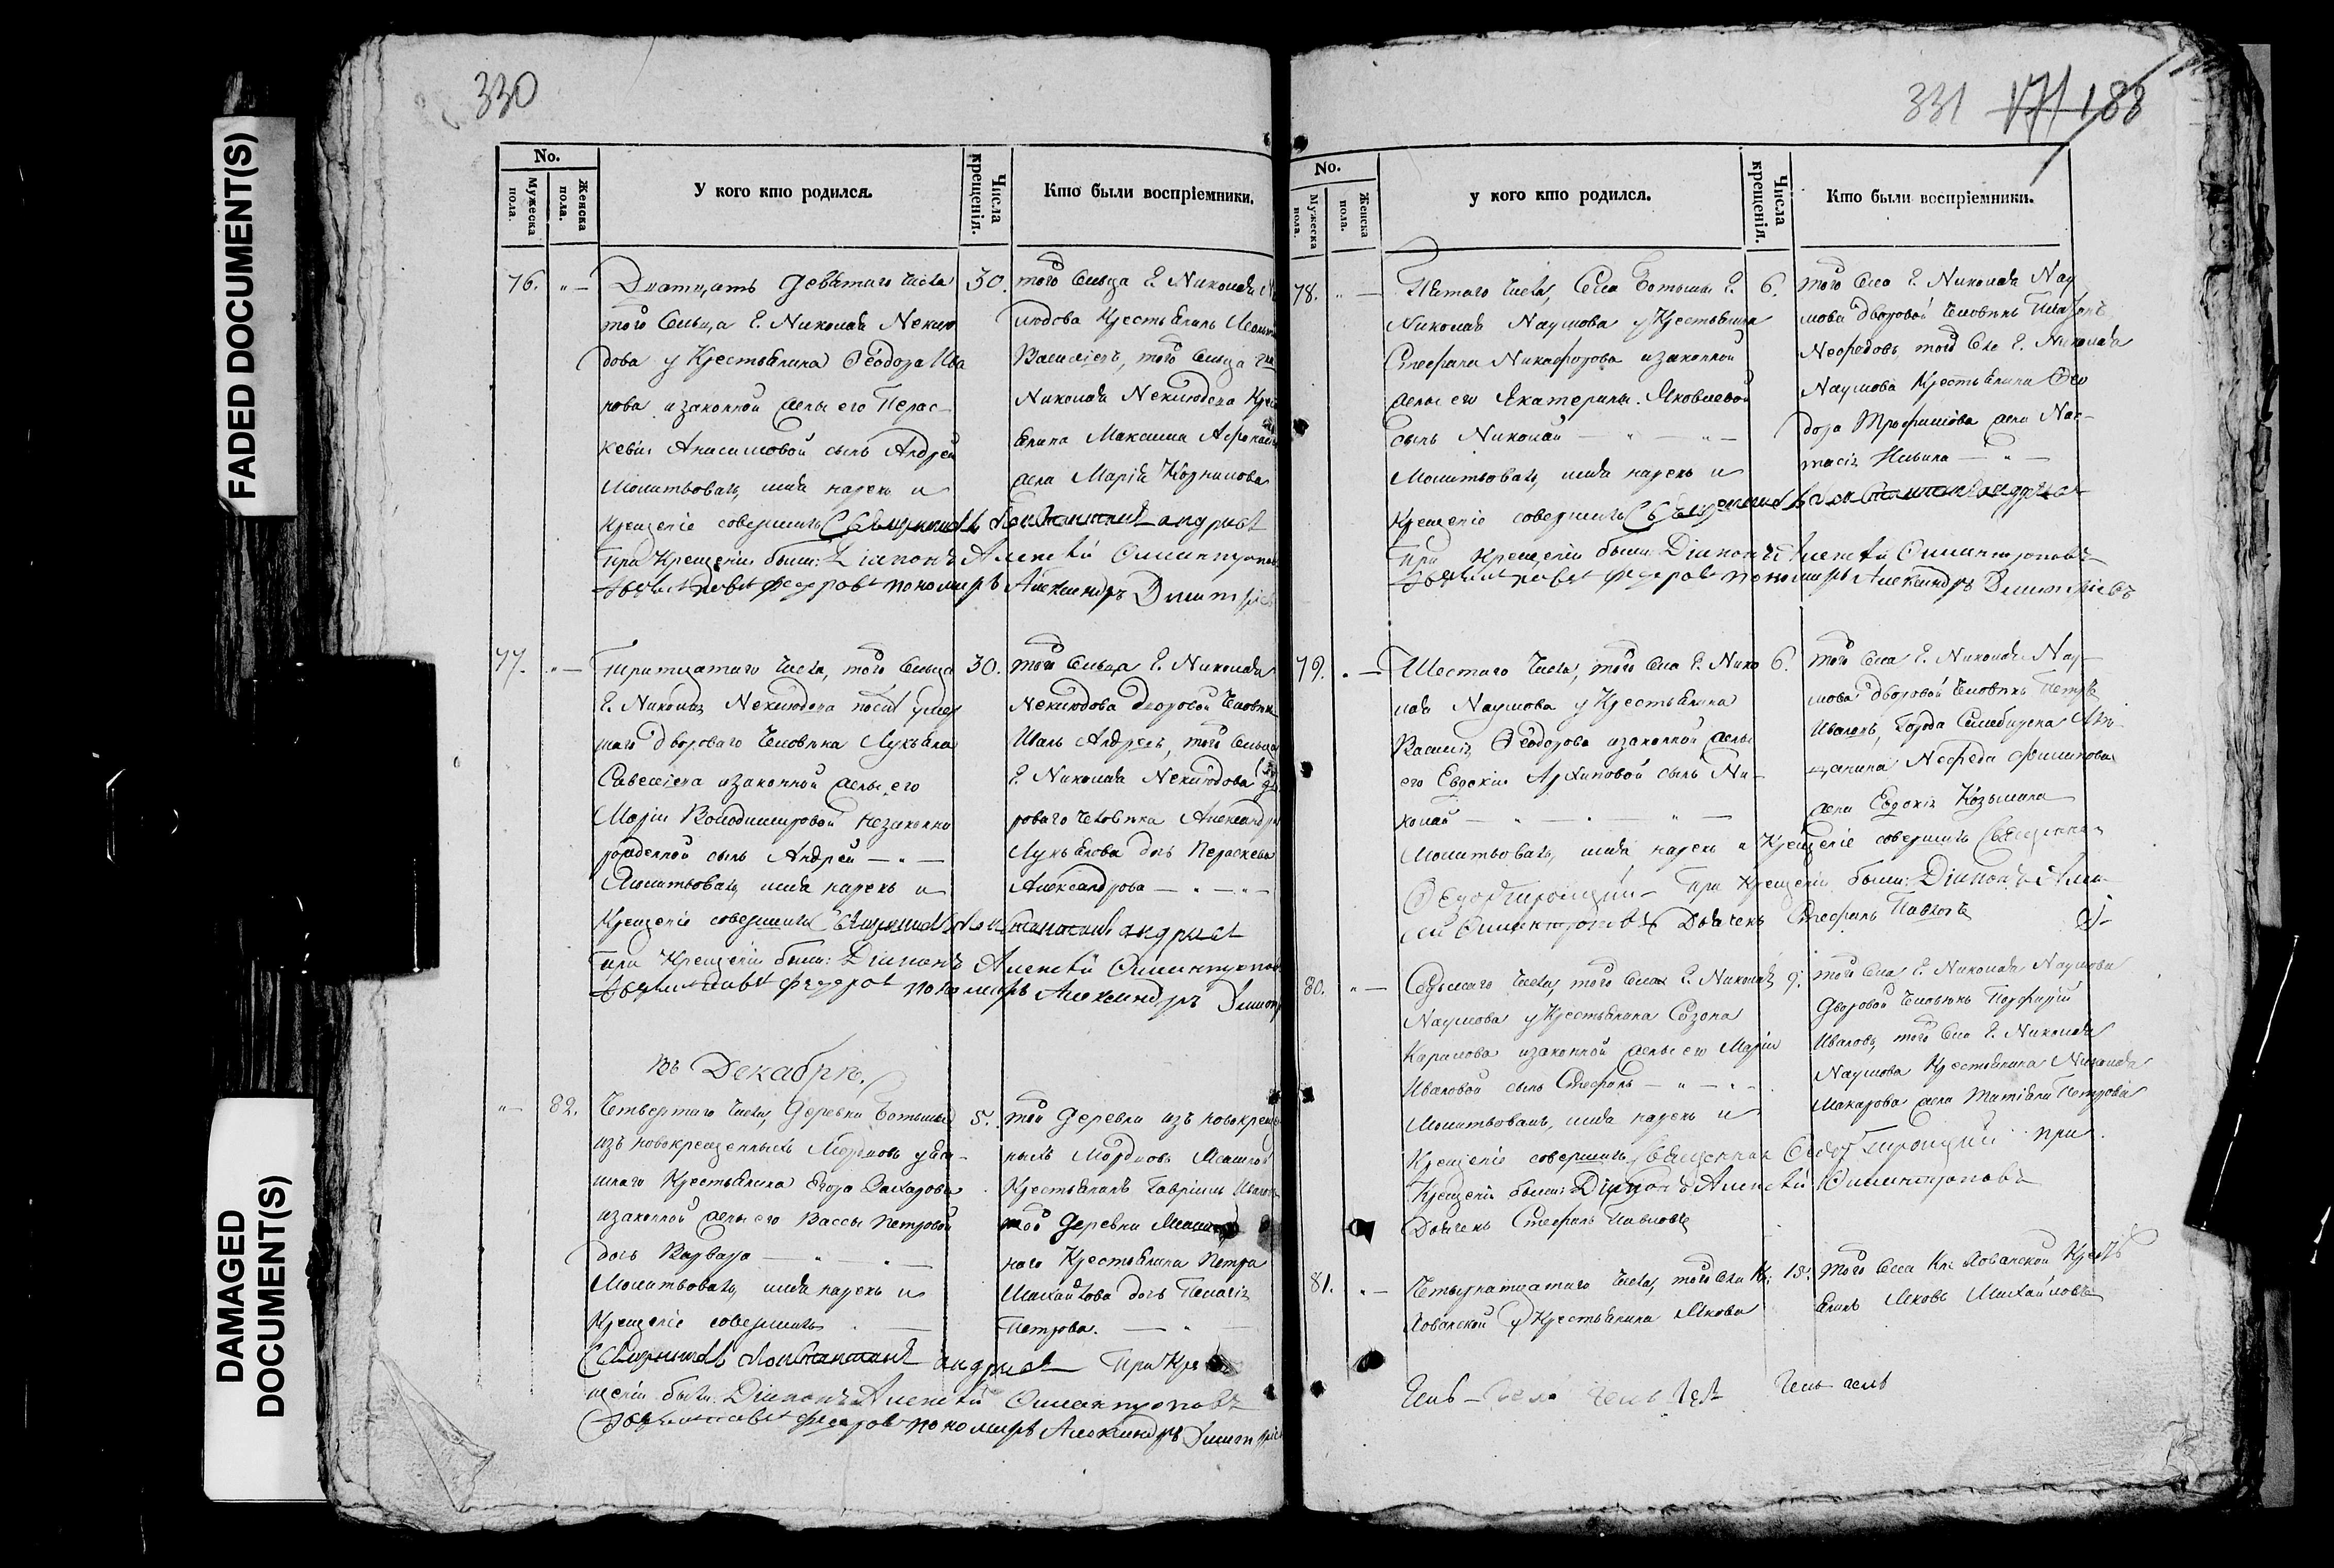 FADED DOCUMENT(S)
DAMAGED
DOCUMENT(S)
330
No.
Мужеска пола.
Женска пола.
У кого кто родился.
Числа крещенія.
Кто были воспріемники.
76. "— Дватцать девятаго числа
того сельца Г. Николая Неклю
дова у крестьянина Ѳеодора Ива
нова и законной жены его Перас-
кевіи Анисимовой сынъ Андрей
Молитвовалъ, имя нарекъ и
Крещеніе совершилъ Священникъ Константинъ
При Крещеніи были: Діаконъ Алексѣй
Федоровъ пономарь Александръ Дмитріевъ
30. того сельца Г. Николая Не
клюдова Крестьянинъ
Васильевъ, того сельца Г
Николая Неклюдова Крес
янина Максима
жена Марія Корнилова
77. "— Тритцатаго числа, того сельца
Г. Николая Неклюдова послѣ умер
шаго двороваго человѣка Лукьяна
Савельева и законной жены его
Маріи Володимировой незаконно
рожденной сынъ Андрей — " —
Молитвовалъ, имя нарекъ и
Крещеніе совершилъ Священникъ Константинъ
При Крещеніи были: Діаконъ Алексѣй
Федоровъ пономарь Александръ
30. того сельца Г. Николая
Неклюдова дворовой человѣкъ
Иванъ Андреевъ, того сельца
Г. Николая Неклюдова дво
роваго человѣка Александра
Лукьянова дочь Пераскева
Александрова — " — " —
въ Декабрѣ.
"— 82. Четвертаго числа, деревни Ботьмы
изъ новокрещенныхъ Мордовъ удѣ-
льнаго Крестьянина Егора Захарова
и законной жены его Вассы Петровой
дочь Варвара — " — " —
Молитвовалъ, имя нарекъ и
Крещеніе совершилъ —
Священникъ Константинъ При Кре
щеніи были Діаконъ Алексѣй
Федоровъ пономарь Александръ Дмитріев
5. той деревни изъ новокрещен
ныхъ Мордовъ
Крестьянинъ Гавріилъ Ивановъ
той деревни
наго Крестьянина Петра
Михайлова дочь Пелагія
Петрова. — " —
331 171 188
No.
Мужеска пола.
Женска пола.
у кого кто родился.
Числа крещенія.
Кто были воспріемники.
78. "— Пятаго числа, Села Ботьмы Г.
Николая Наумова у Крестьянина
Стефана Никифорова и законной
жены его Екатерины Яковлевой
сынъ Николай — " — " —
Молитвовалъ, имя нарекъ и
Крещеніе совершилъ Священникъ Константинъ
При Крещеніи были: Діаконъ Алексѣй
Федоровъ пономарь Александръ Дмитріевъ
6. того села Г. Николая Нау
мова дворовой человѣкъ Платонъ
Нефедовъ, того села Г. Николая
Наумова Крестьянина Ѳео
дора Трофимова жена Нас-
тасія Ильина — " —
79. "— Шестаго числа, того села Г. Нико
лая Наумова у Крестьянина
Василія Ѳеодорова и законной жены
его Евдокіи Архиповой сынъ Ни-
колай — " — " —
Молитвовалъ, имя нарекъ и Крещеніе совершилъ Священникъ
Ѳеодоръ Троицкій При Крещеніи были: Діаконъ Алек
сѣй Дьячекъ Стефанъ Павловъ
6. того села Г. Николая Нау-
мова дворовой человѣкъ Петръ
Ивановъ, города Симбирска Мѣ-
щанина Нефеда Филипова
жена Евдокія Козьмина
80. "— Седьмаго числа, того села Г. Николая
Наумова у Крестьянина Созона
Карамова и законной жены его Маріи
Ивановой сынъ Стефанъ — " — "
Молитвовалъ, имя нарекъ и
Крещеніе совершилъ Священникъ Ѳеодоръ Троицкій при
Крещеніи были: Діаконъ Алексѣй
Дьячекъ Стефанъ Павловъ
9. того села Г. Николая Наумова
дворовой человѣкъ Порфирій
Ивановъ, того села Г. Николая
Наумова Крестьянина Николая
Макарова жена Матрена Петрова
81. "— Четырнатцатаго числа, того села Кн:
Хованской у Крестьянина Якова
15. того села Кн: Хованской Крестъ
янинъ Яковъ Михайловъ